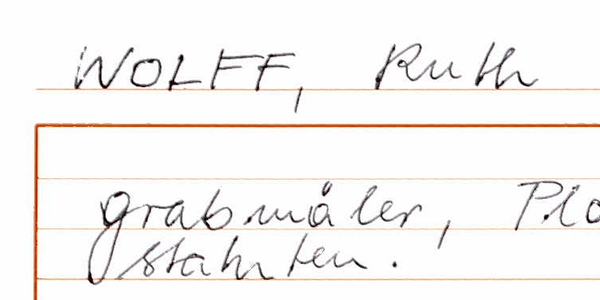 WOLFF, Ruth
grabmäler, Pla
stahten.